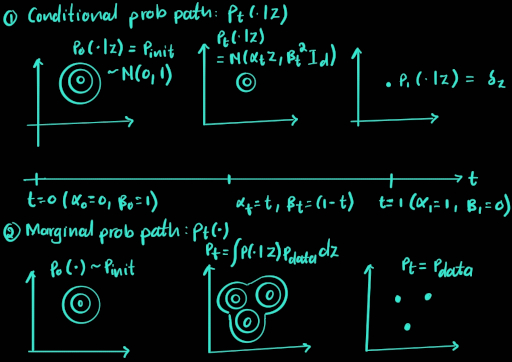 ① Conditional prob path: Pt(·|z)
P₀(·|z) = Pinit
~N(0,1)
Pt(·|z)
= N(αt z, βt² Id)
P₁(·|z) = δz
t
t=0 (α₀=0, β₀=1)
αt=t, βt=(1-t)
t=1 (α₁=1, β₁=0)
② Marginal prob path: Pt(·)
P₀(·) ~ Pinit
Pt=∫P(·|z)Pdata dz
Pt = Pdata